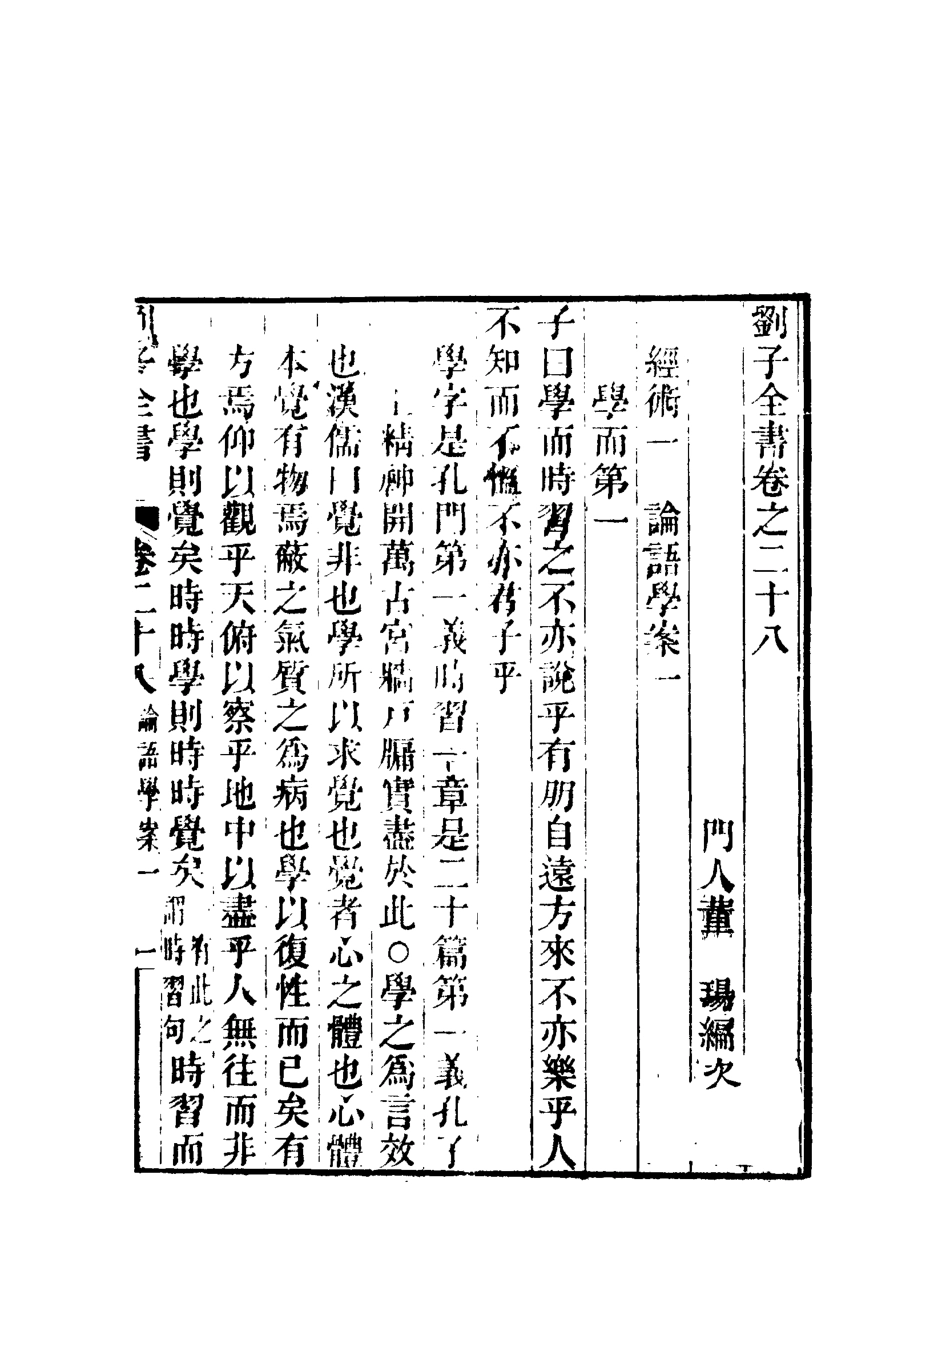 劉子全書卷之二十八
門人董　瑒編次
經術一　論語學案一
學而第一
子曰學而時習之不亦說乎有朋自遠方來不亦樂乎人
不知而不慍不亦君子乎
學字是孔門第一義時習一章是二十篇第一義孔子
精神開萬古宮牆戶牖實盡於此○學之爲言效
也漢儒曰覺非也學所以求覺也覺者心之體也心體
本覺有物焉蔽之氣質之爲病也學以復性而已矣有
方焉仰以觀乎天俯以察乎地中以盡乎人無往而非
學也學則覺矣時時學則時時覺矣有此之謂時習句時習而
劉子全書　卷二十八　論語學案一　一